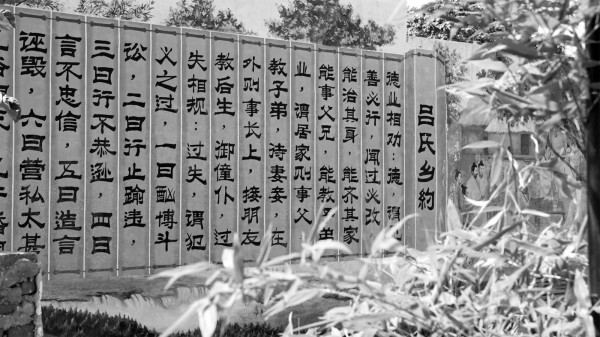 吕氏乡約
德业相劝：德，谓
善必行，闻过必改
能治其身，能齐其家
能事父兄，能教子弟
业，谓居家则事父
教子弟，待妻妾，在
外则事长上，接朋友
教后生，御僮仆，过
失相规：过失，谓犯
义之过，一曰酗博斗
讼，二曰行止踰违，
三曰行不恭逊，四曰
言不忠信，五曰造言
诬毁，六曰营私太甚